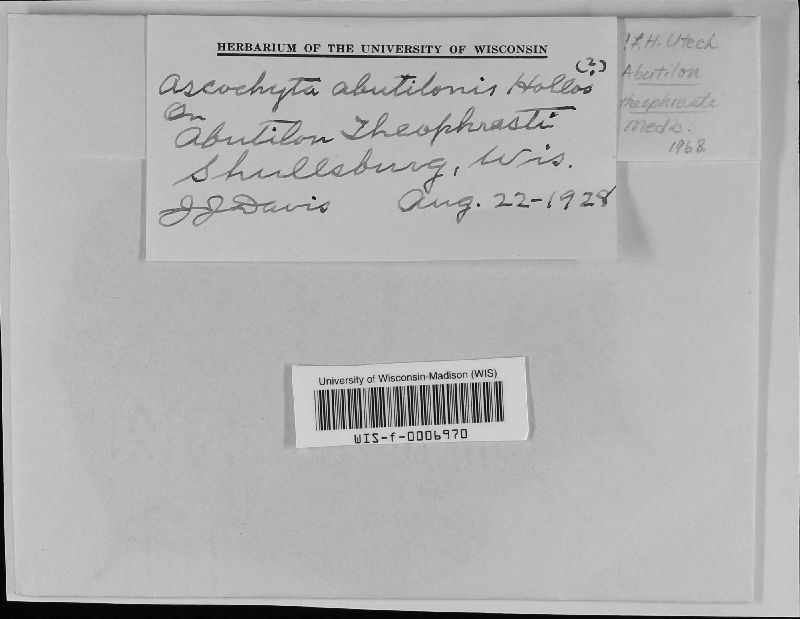 HERBARIUM OF THE UNIVERSITY OF WISCONSIN
Ascochyta abutilonis Hollos (?)
On
Abutilon Theophrasti
Shullsburg, Wis.
J J Davis Aug. 22-1928
! F.H. Utech
Abutilon
theophrasti
Medic.
1968
University of Wisconsin-Madison (WIS)
WIS-f-0006970